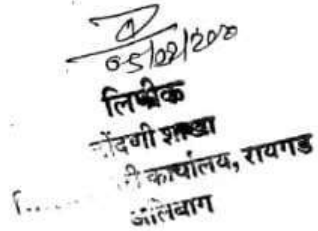 05/02/2020
लिपीक
नोंदणी शाखा
कार्यालय, रायगड
अलिबाग